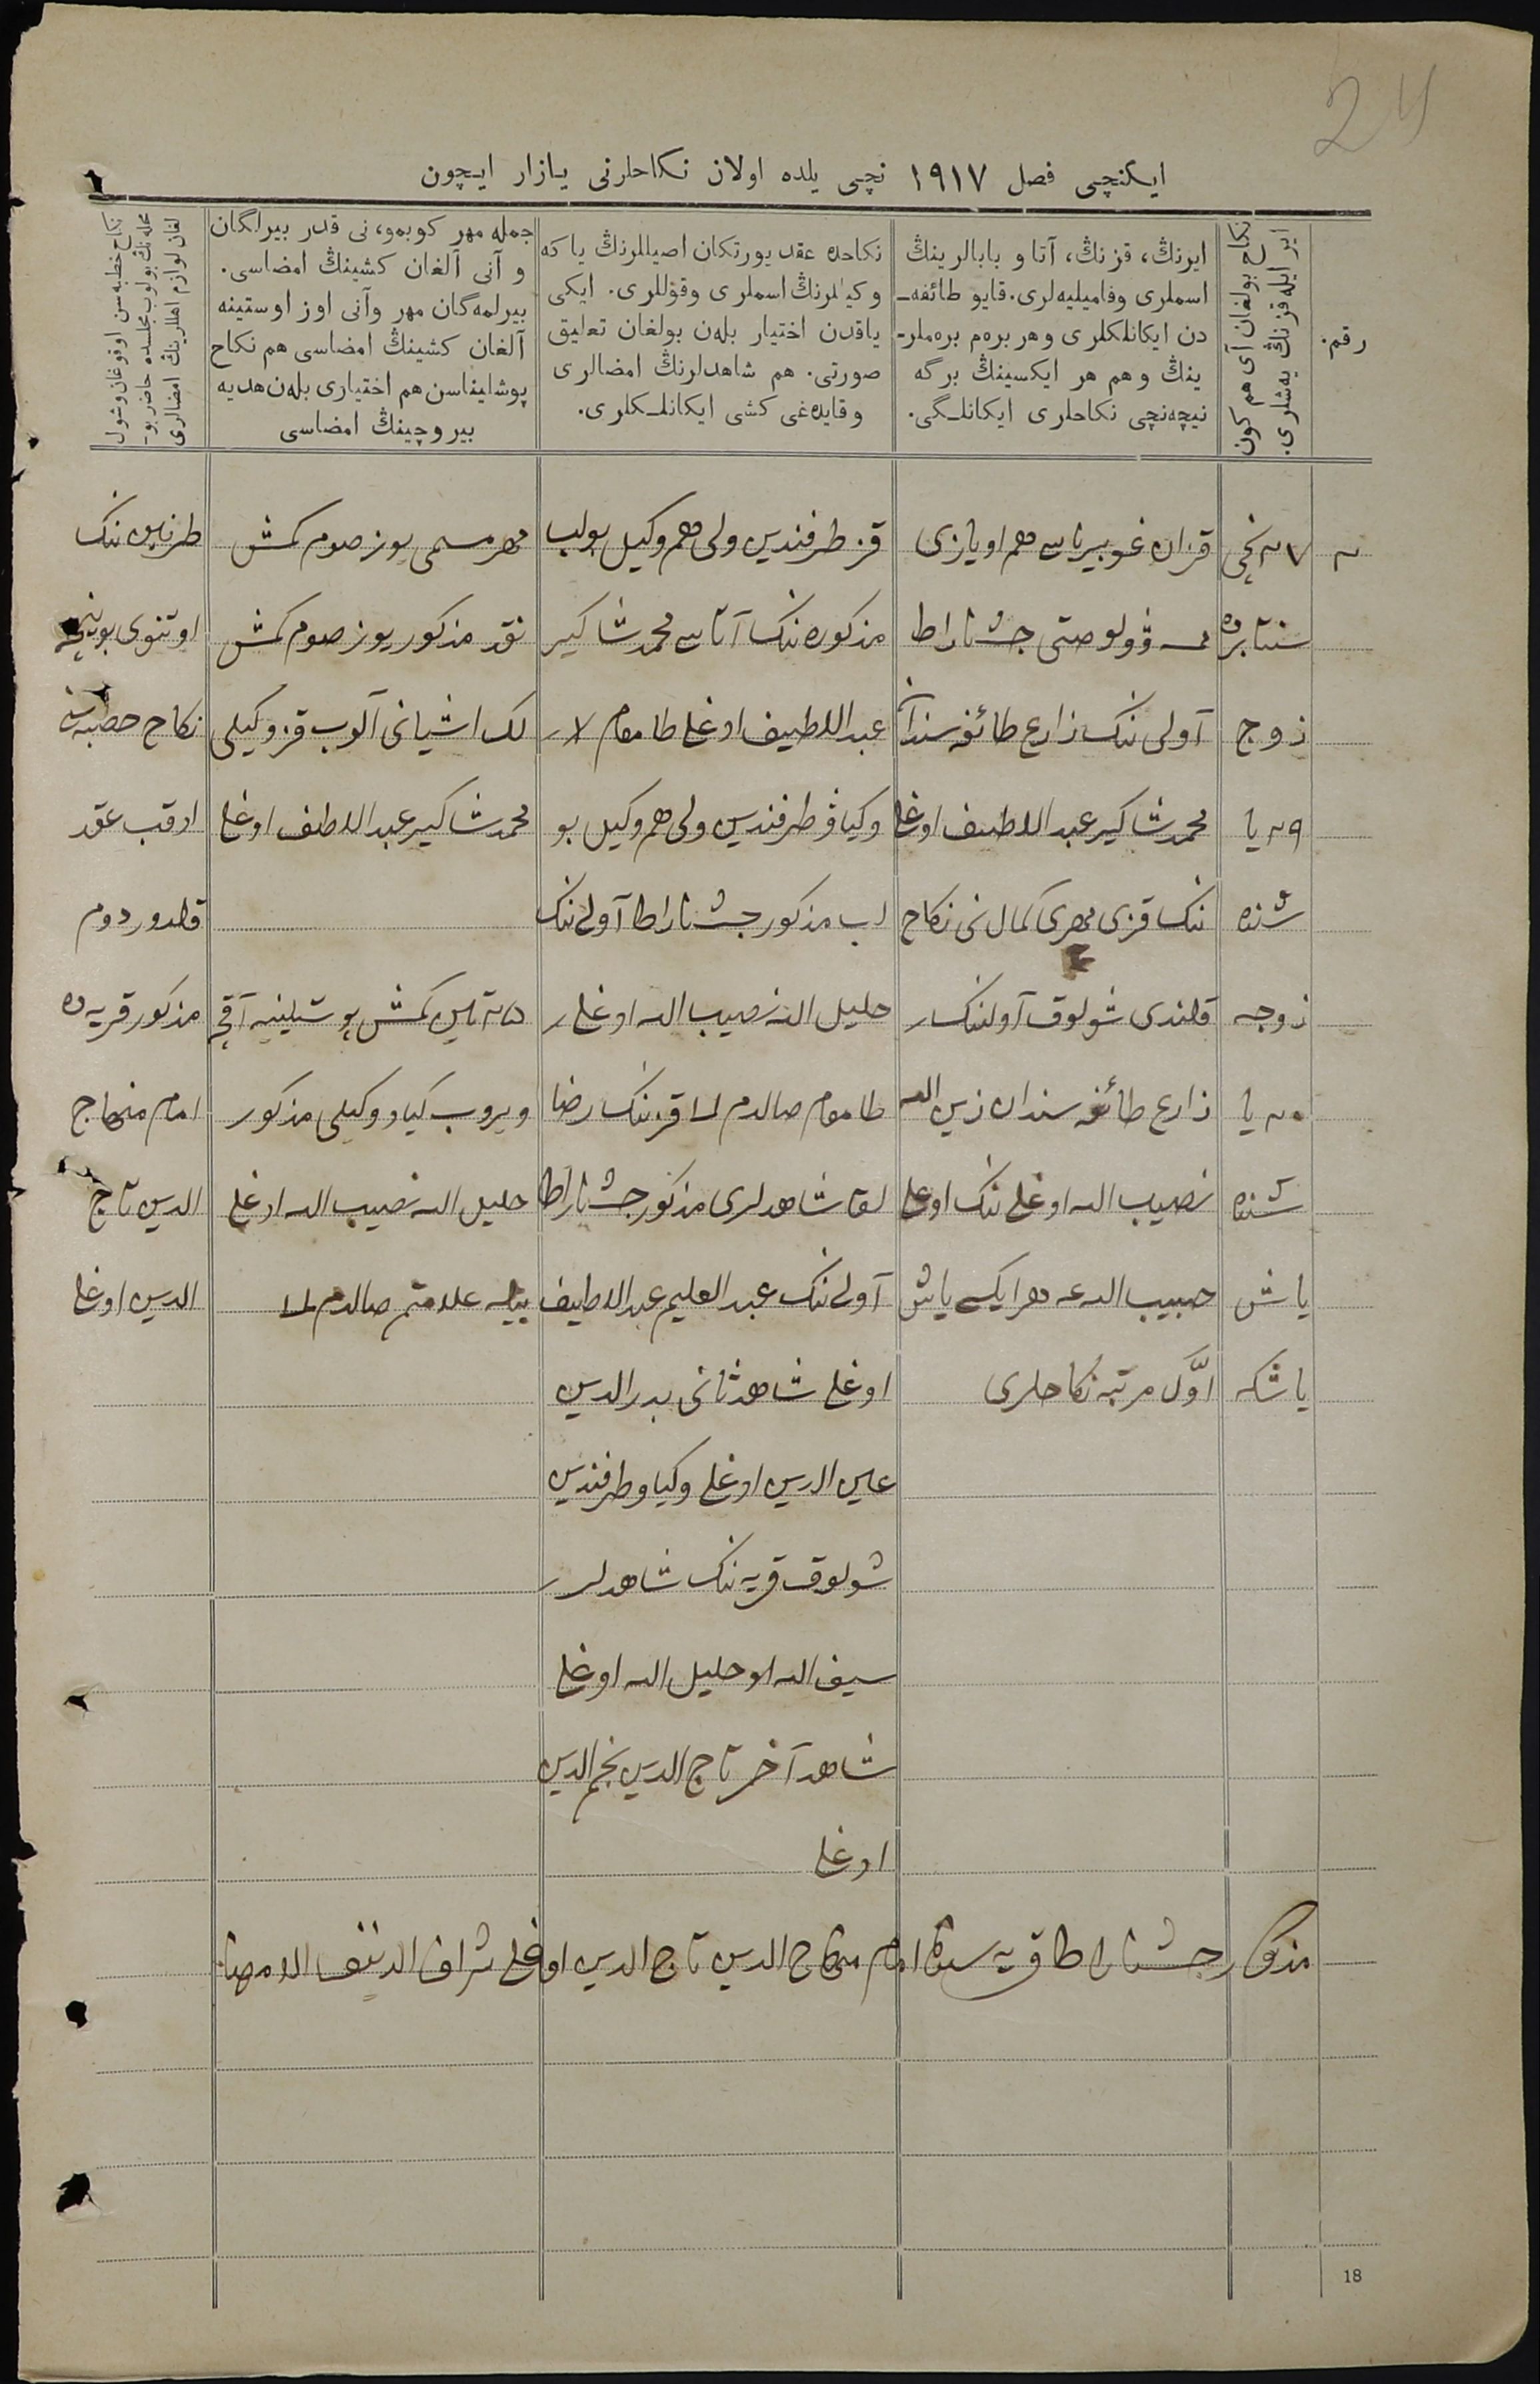 24
ایکنچی فصل ١٩١٧ نچی یلده اولان نکاحلرنی یازار ایچون
رقم.
نکاح بولغان آی هم کون
ایر ایله قزنڭ یەشلری.
ایرنڭ، قزنڭ، آتا و بابالرینڭ
اسملری وفامیلیه‌لری. قایو طائفه‌ـ
دن ایکانلکلری وهر برەم برەملرـ
ینڭ وهم هر ایکسینڭ برگه
نیچه‌نچی نکاحلری ایکانلـگی.
نکاحده عقد یورتکان اصیللرنڭ یا که
وکیللرنڭ اسملری وقوللری. ایکی
یاقدن اختیار بله‌ن بولغان تعلیق
صورتی. هم شاهدلرنڭ امضالری
وقایده‌غی کشی ایکانلـکلری.
جمله مهر کوبمو، نی قدر بیرلگان
و آنی آلغان کشینڭ امضاسی.
بیرلمه‌گان مهر وآنی اوز اوستینه
آلغان کشینڭ امضاسی هم نکاح
پوشلیناسن هم اختیاری بله‌ن هدیه
بیروچینڭ امضاسی
نکاح خطبه‌سن اوقوغان وشول
محله‌نڭ بولوب مجلسده حاضر بوـ
لغان لوازم اهللرینڭ امضالری
٢
٢٧ نچی
سنتابرده
زوج
٢٩ یا
شنده
زوجه
٢٠ یا
شنده
یاش
یاشکه
قزان غوبیرناسی هم اویازی
ـه ڤولوصتی جشناراط
آولی ننک زارع طائفه سندان
محمد شاکیر عبد اللطیف اوغلی
ننک قزی مهری کمال نی نکاح
قلندی شولوق آولننک
زارع طائفه سندان زین الله
نصیب الله اوغلی ننک اوغلی
حبیب الله‌غه هر ایکسی یاش
اوّل مرتبه نکاحلری
قز طرفندین ولی هم وکیل بولب
مذکوره ننک آتاسی محمد شاکیر
عبد اللطیف اوغلی طامغام
وکیاو طرفندین ولی هم وکیل بو
لب مذکور جشناراط آولی ننک
خلیل الله نصیب الله اوغلی
طامغام صالدم قزننک رضا
لقا شاهدلری مذکور جشناراط
آولی ننک عبد العلیم عبد اللطیف
اوغلی شاهد ثانی بدر الدین
عین الدین اوغلی وکیاو طرفندین
شولوق قریه ننک شاهدلر
سیف الله خلیل الله اوغلی
شاهد آخر تاج الدین نجم الدین
اوغلی
مهر مسمی یوز صوم کمش
نقد مذکور یوز صوم کمش
لک اشیانی آلوب قز وکیلی
محمد شاکیر عبد اللطیف اوغلی
٢٥ تین کمش پوشلینه آقچه
ویروب کیاو وکیلی مذکور
خلیل الله نصیب الله اوغلی
بیله علامتم صالدم
طرفین ننک
اوتنوی بوینچه
نکاح خطبه سن
اوقب عقد
قلدوردوم
مذکور قریه ده
امام منهاج
الدین تاج
الدین اوغلی
مذکور جشناراط قریه سنده امام منهاج الدین تاج الدین اوغلی شراف الدینف
18